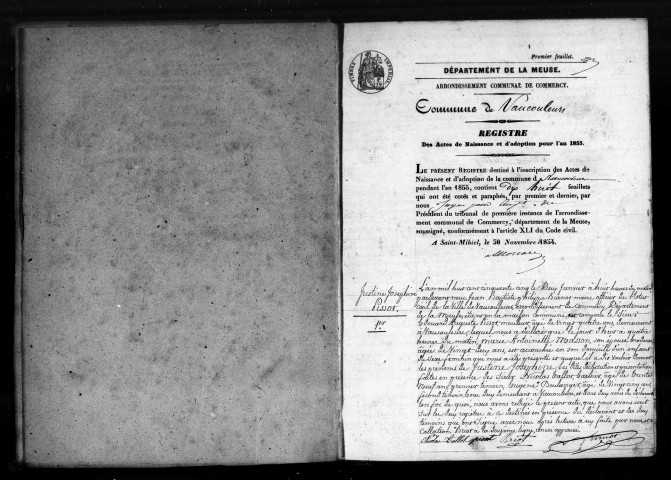 Premier feuillet.
DÉPARTEMENT DE LA MEUSE.
ARRONDISSEMENT COMMUNAL DE COMMERCY.
Commune de Vaucouleurs
REGISTRE
Des Actes de Naissance et d'adoption pour l'an 1855.
LE PRÉSENT REGISTRE destiné à l'inscription des Actes de
Naissance et d'adoption de la commune d
pendant l'an 1855, contient dix huit feuillets
qui ont été cotés et paraphés, par premier et dernier, par
nous
Président du tribunal de première instance de l'arrondisse-
ment communal de Commercy, département de la Meuse,
soussigné, conformément à l'article XLI du Code civil.
A Saint-Mihiel, le 30 Novembre 1854.
Justine Josephine
Pissot.
1er
L'an mil huit cent cinquante cinq le deux Janvier à huit heures du matin
pardevant nous Jean Baptiste officier de l'état
civil de la Ville de Vaucouleurs, arrondissement de Commercy, Département
de la Meuse, en la maison commune, est comparu le Sieur
Edouard Auguste Pissot âgé de vingt quatre ans, demeurant
à Vaucouleurs, lequel nous a déclaré que le jour d'hier à quatre
heures du matin, Marie Antoinette Masson, son épouse
âgée de vingt deux ans, est accouchée en son domicile d'un enfant
de sexe féminin qui nous a été présenté et auquel il a dit vouloir donner
les prénoms de Justine Josephine, les dites déclaration et présentation
faites en présence des Sieurs Nicolas Collot âgé de trente
neuf ans, premier témoin, Eugène Boulanger, âgé de vingt cinq ans
second témoin, tous deux demeurant à Vaucouleurs
en foi de quoi, nous avons rédigé le présent acte, que nous avons
sur les deux registres à ce destinés en présence du déclarant et des deux
témoins qui ont signé avec nous après lecture à eux faite par nous et
Collation
Collot pissot